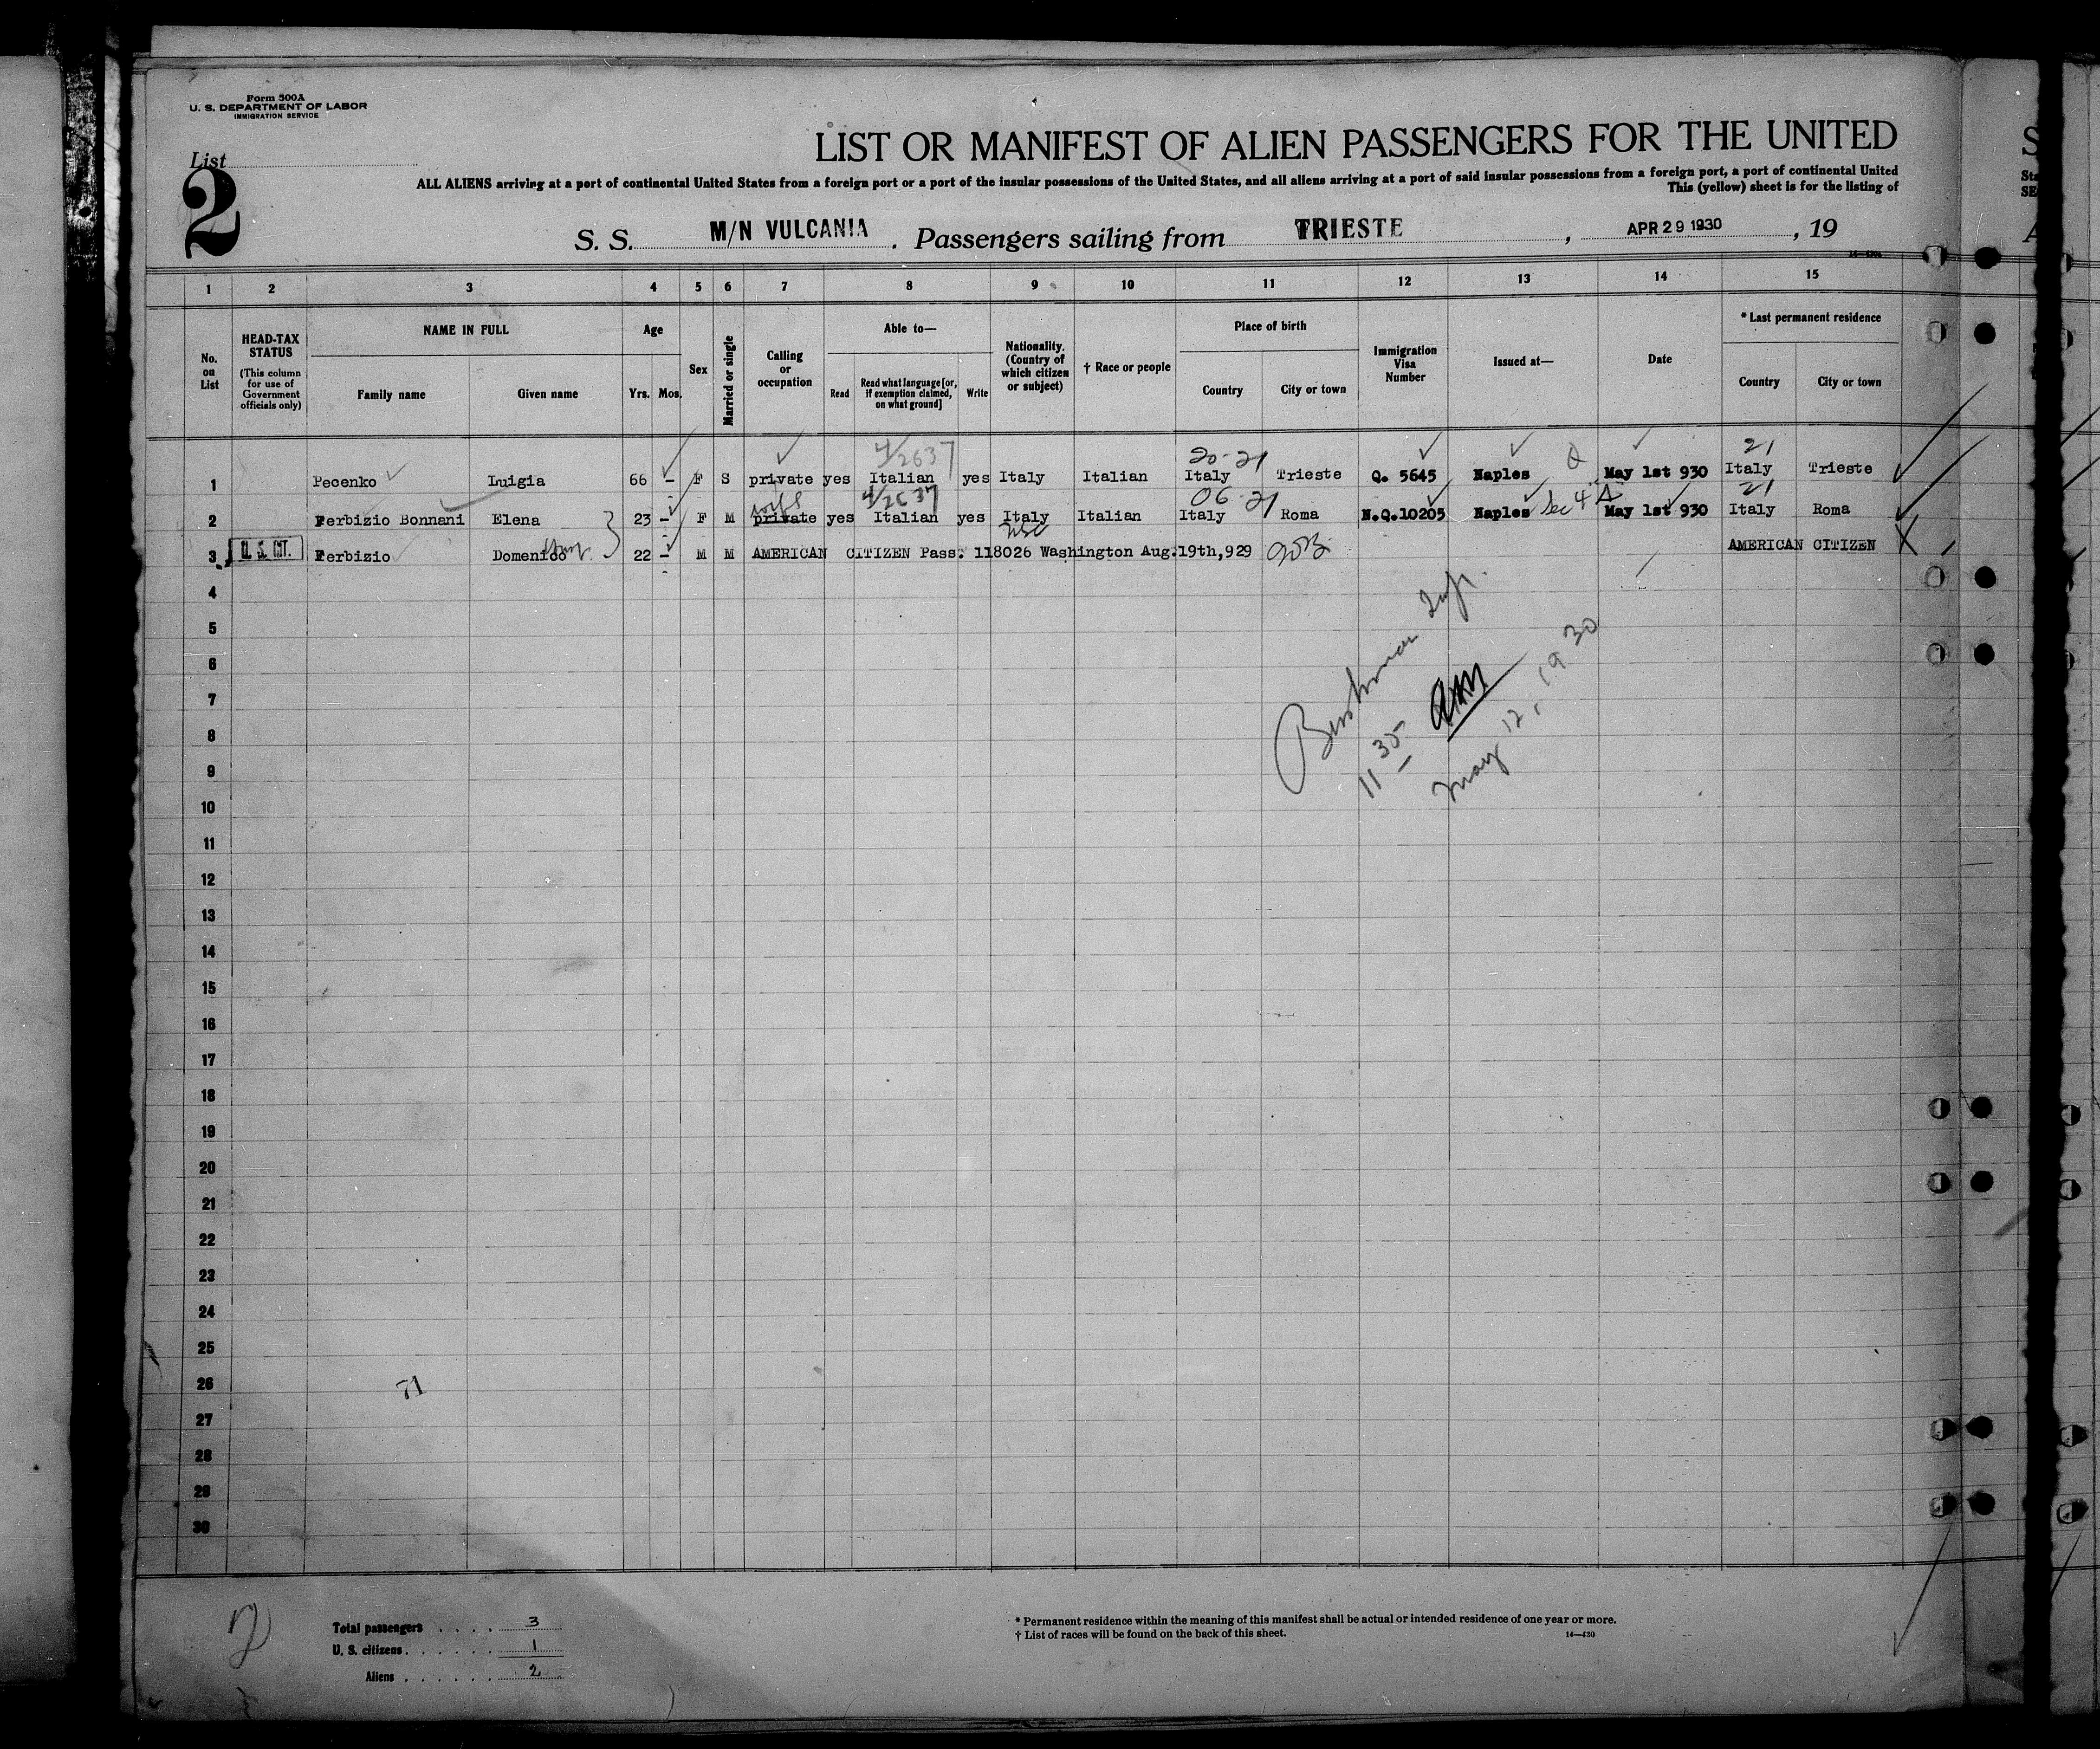 Form 500A
U. S. DEPARTMENT OF LABOR
IMMIGRATION SERVICE
List
2
LIST OR MANIFEST OF ALIEN PASSENGERS FOR THE UNITED
ALL ALIENS arriving at a port of continental United States from a foreign port or a port of the insular possessions of the United States, and all aliens arriving at a port of said insular possessions from a foreign port, a port of continental United
This (yellow) sheet is for the listing of
S. S. M/N VULCANIA . Passengers sailing from TRIESTE , APR 29 1930 , 19
1 2 3 4 5 6 7 8 9 10 11 12 13 14 15
No. on List
HEAD-TAX STATUS (This column for use of Government officials only)
NAME IN FULL
Family name Given name
Age
Yrs. Mos.
Sex
Married or single
Calling or occupation
Able to—
Read Read what language [or, if exemption claimed, on what ground] Write
Nationality. (Country of which citizen or subject)
† Race or people
Place of birth
Country City or town
Immigration Visa Number
Issued at—
Date
* Last permanent residence
Country City or town
4/2637 20-21 21
1 Pecenko Luigia 66 - F S private yes Italian yes Italy Italian Italy Trieste Q. 5645 Naples Q May 1st 930 Italy Trieste
wife 4/2637 06-21 21
2 Ferbizio Bonnani Elena 23 - F M private yes Italian yes Italy Italian Italy Roma N.Q.10205 Naples Sec 4 A May 1st 930 Italy Roma
USC
3 U. S. CIT. Ferbizio Domenico 22 - M M AMERICAN CITIZEN Pass. 118026 Washington Aug.19th,929 AMERICAN CITIZEN
4
5
6
7
8
9
10
11
12
13
14
15
16
17
18
19
20
21
22
23
24
25
26
27
28
29
30
11 35 am
May 12, 1930
71
2
Total passengers . . . . 3
U. S. citizens . . . . . . 1
Aliens . . . . . . 2
* Permanent residence within the meaning of this manifest shall be actual or intended residence of one year or more.
† List of races will be found on the back of this sheet.
14—420